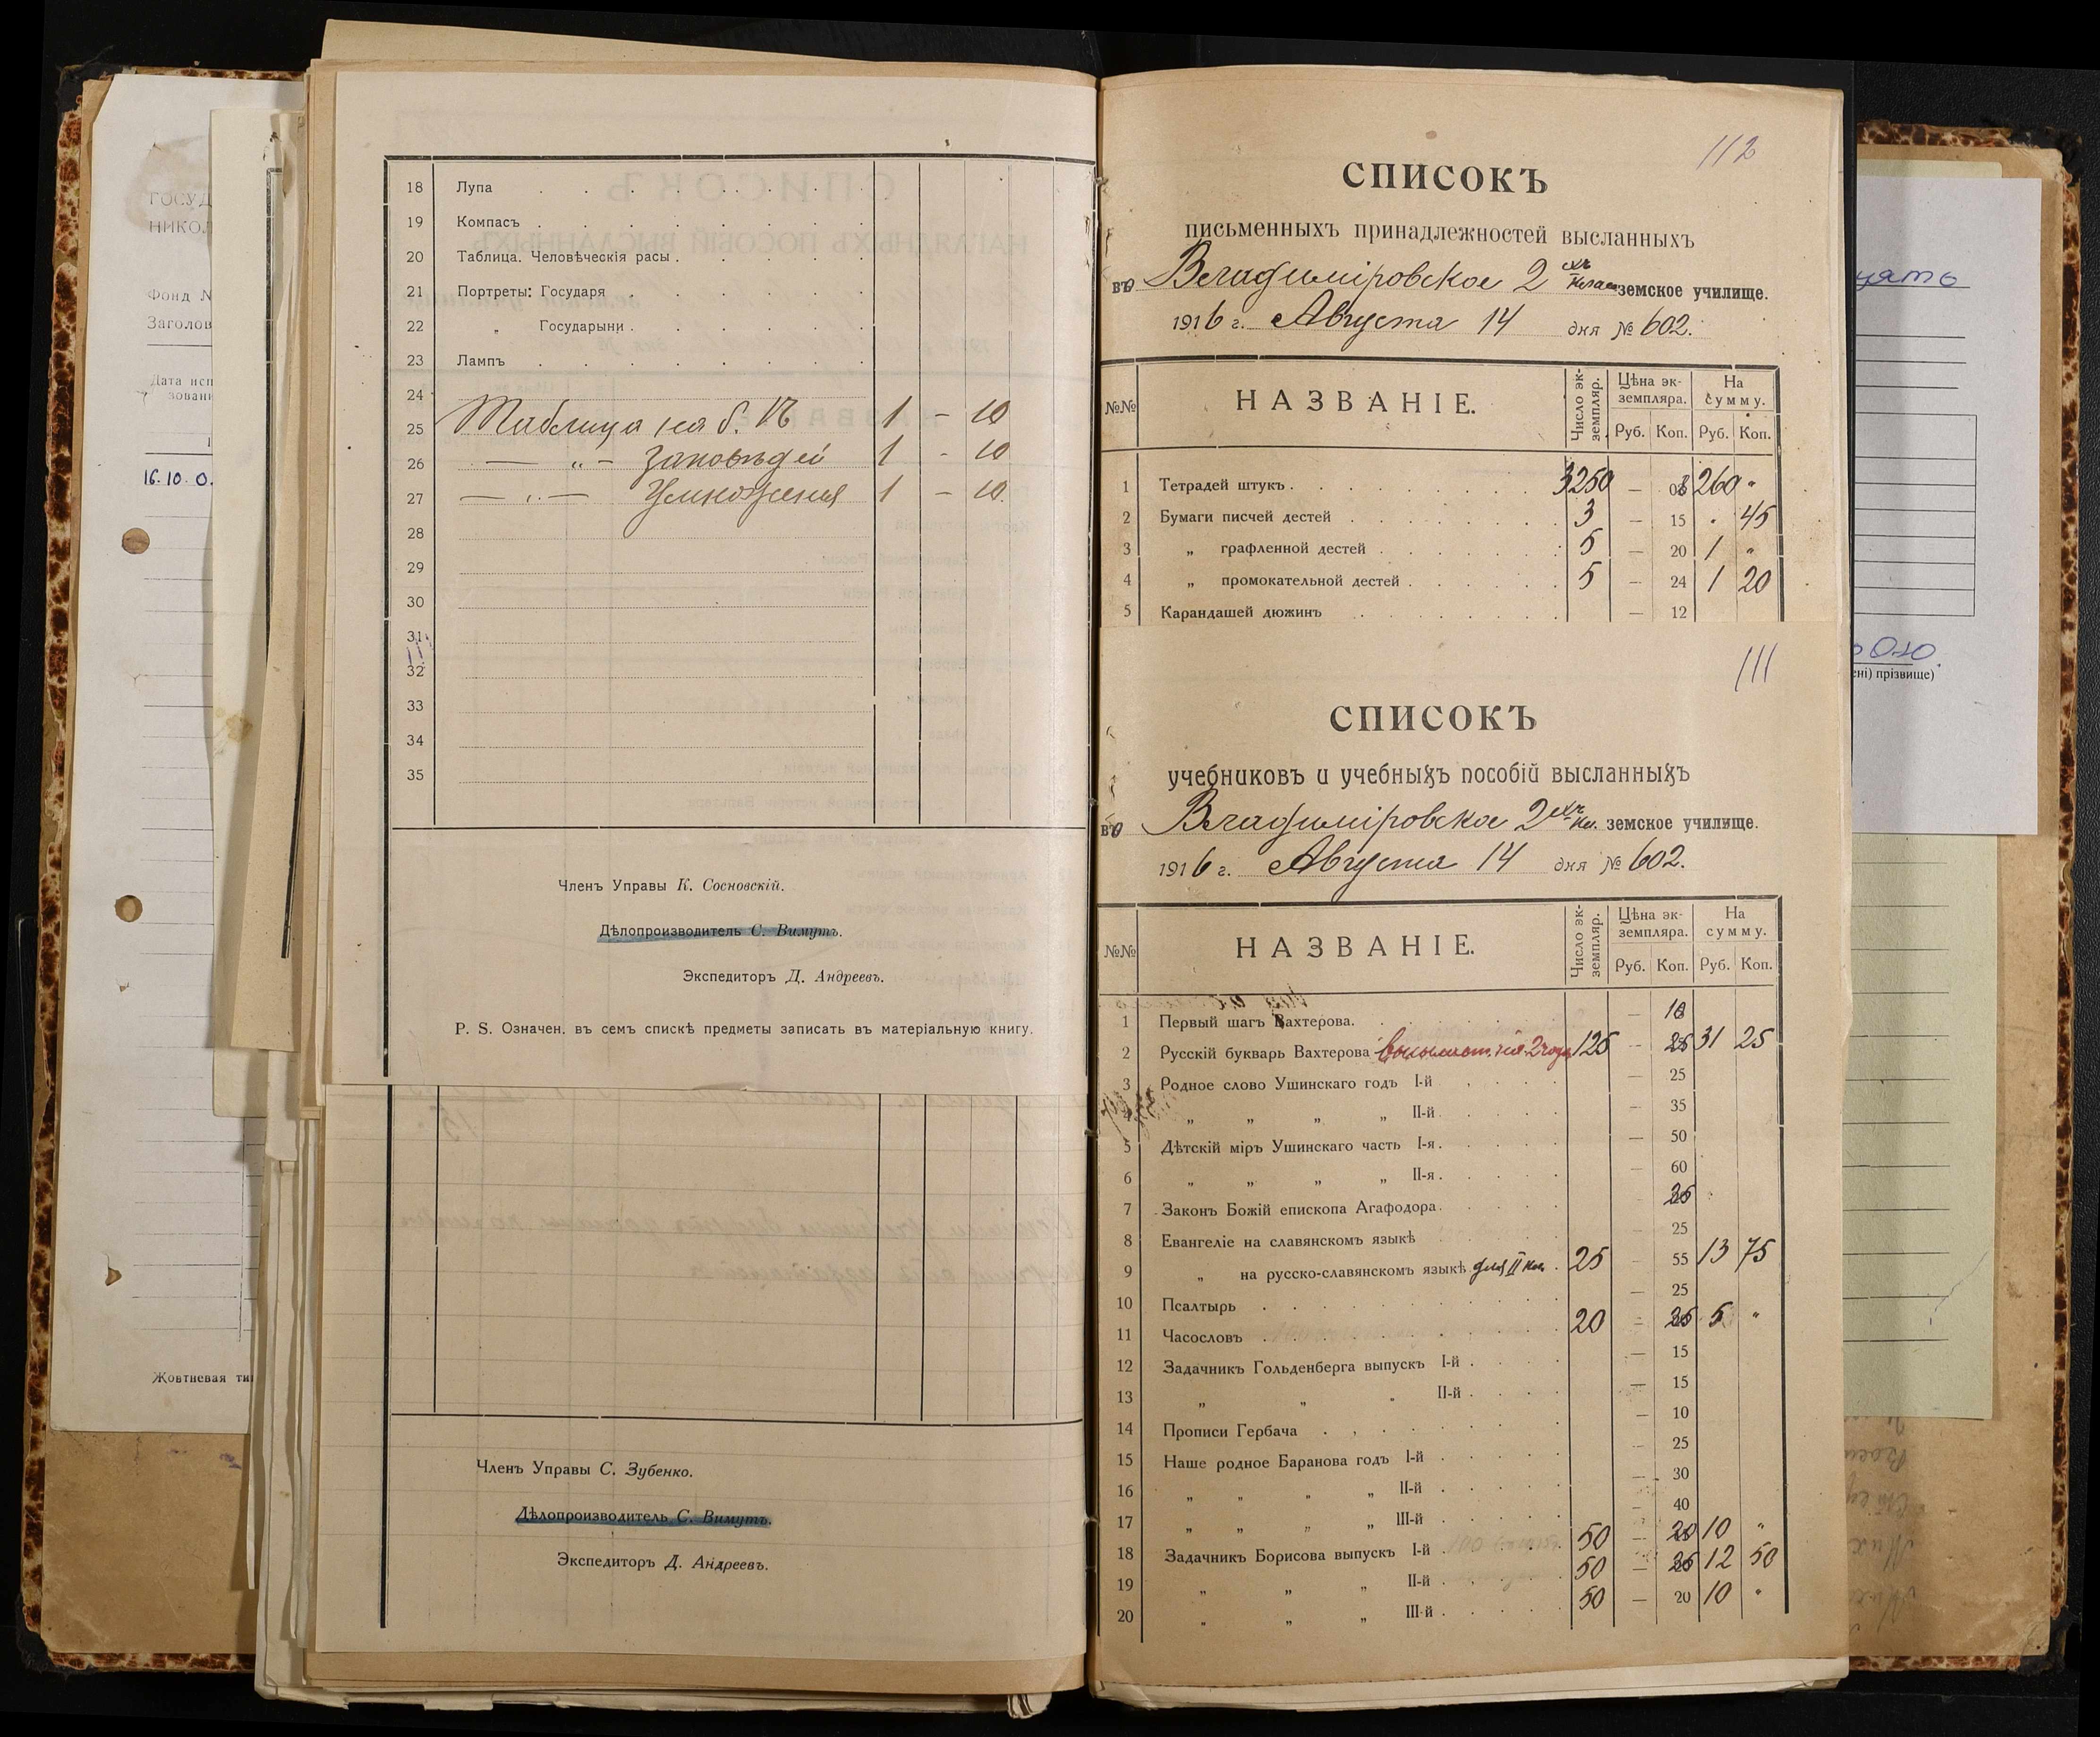 ГОСУД
НИКОЛ
Фонд N
Заголов
Дата исп
зовани
16.10.0.
Жовтневая ти
18 Лупа
19 Компасъ
20 Таблица. Человѣческія расы
21 Портреты: Государя
22 „ Государыни
23 Лампъ
24
25 Таблица на б. Ѣ 1 – 10
26 — „ – Заповѣдей 1 - 10
27 — „ — Умноженія 1 – 10.
28
29
30
31
32
33
34
35
Членъ Управы К. Сосновскій.
Дѣлопроизводитель С. Вимутъ.
Экспедиторъ Д. Андреевъ.
P. S. Означен. въ семъ спискѣ предметы записать въ матеріальную книгу.
Членъ Управы С. Зубенко.
Дѣлопроизводитель С. Вимутъ.
Экспедиторъ Д. Андреевъ.
112
СПИСОКЪ
письменныхъ принадлежностей высланныхъ
во Владиміровское 2 хъ клас земское училище.
1916 г. Августа 14 дня № 602.
№№ НАЗВАНІЕ. Число экземпляр. Цѣна экземпляра. На сумму.
Руб. Коп. Руб. Коп.
1 Тетрадей штукъ 3250 — 08 260 „
2 Бумаги писчей дестей 3 — 15 . 45
3 „ графленной дестей 5 — 20 1 „
4 „ промокательной дестей 5 — 24 1 20
5 Карандашей дюжинъ — 12
111
СПИСОКЪ
учебниковъ и учебныхъ пособій высланныхъ
во Владиміровское 2 хъ кл. земское училище.
1916 г. Августа 14 дня № 602.
№№ НАЗВАНІЕ. Число экземпляр. Цѣна экземпляра. На сумму.
Руб. Коп. Руб. Коп.
1 Первый шагъ Вахтерова. —
2 Русскій букварь Вахтерова 125 — 25 31 25
3 Родное слово Ушинскаго годъ I-й — 25
4 „ „ „ „ II-й — 35
5 Дѣтскій міръ Ушинскаго часть I-я — 50
6 „ „ „ „ II-я — 60
7 Законъ Божій епископа Агафодора 25
8 Евангеліе на славянскомъ языкѣ 25
9 „ на русско-славянскомъ языкѣ для II кл. 25 — 55 13 75
10 Псалтырь — 25
11 Часословъ 20 — 25 5 „
12 Задачникъ Гольденберга выпускъ I-й — 15
13 „ „ „ II-й — 15
14 Прописи Гербача — 10
15 Наше родное Баранова годъ I-й — 25
16 „ „ „ „ II-й — 30
17 „ „ „ „ III-й — 40
18 Задачникъ Борисова выпускъ I-й 50 — 20 10 „
19 „ „ „ II-й 50 — 25 12 50
20 „ „ „ III-й 50 — 20 10 „
ені) прізвище)